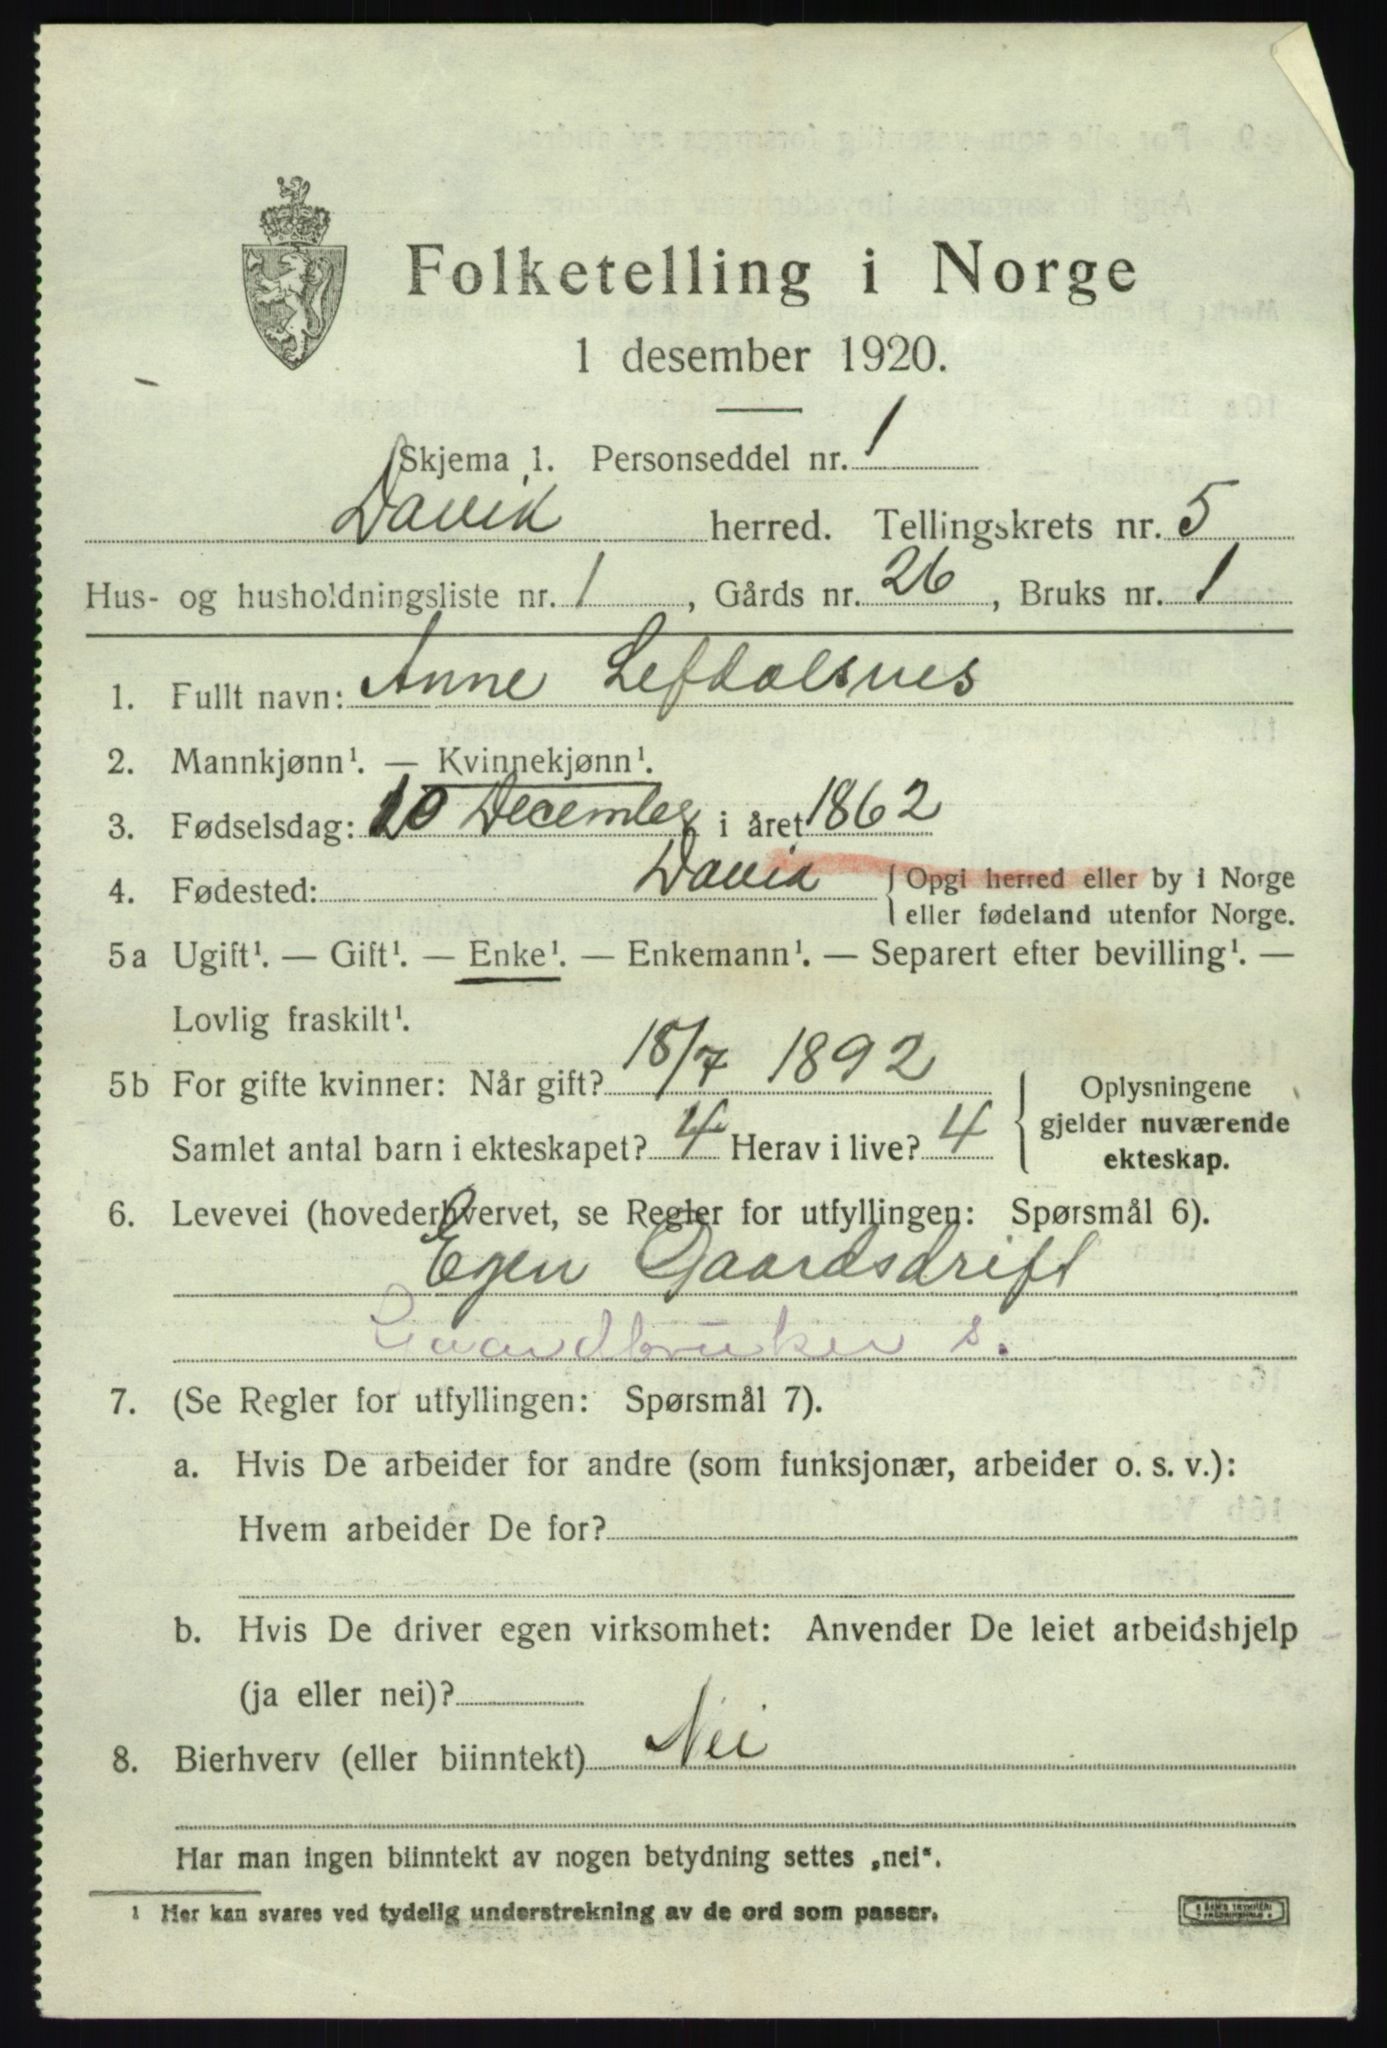 Folketelling i Norge
1 desember 1920.
Skjema 1. Personseddel nr. 1
Davik herred. Tellingskrets nr. 5
Hus- og husholdningsliste nr. 1, Gårds nr. 26, Bruks nr. 1
1. Fullt navn: Anne Lefdalsnes
2. Mannkjønn¹. — Kvinnekjønn¹.
3. Fødselsdag: 10 December i året 1862
4. Fødested: Davik Opgi herred eller by i Norge
eller fødeland utenfor Norge.
5a Ugift¹. — Gift¹. — Enke¹. — Enkemann¹. — Separert efter bevilling¹. —
Lovlig fraskilt¹.
5b For gifte kvinner: Når gift? 18/7 1892 Oplysningene
gjelder nuværende
Samlet antal barn i ekteskapet? 4 Herav i live? 4 ekteskap.
6. Levevei (hovederhvervet, se Regler for utfyllingen: Spørsmål 6).
Egen Gaardsdrift
Gaardbruker s.
7. (Se Regler for utfyllingen: Spørsmål 7).
a. Hvis De arbeider for andre (som funksjonær, arbeider o. s. v.):
Hvem arbeider De for?
b. Hvis De driver egen virksomhet: Anvender De leiet arbeidshjelp
(ja eller nei)?
8. Bierhverv (eller biinntekt) Nei
Har man ingen biinntekt av nogen betydning settes „nei“.
1 Her kan svares ved tydelig understrekning av de ord som passer.